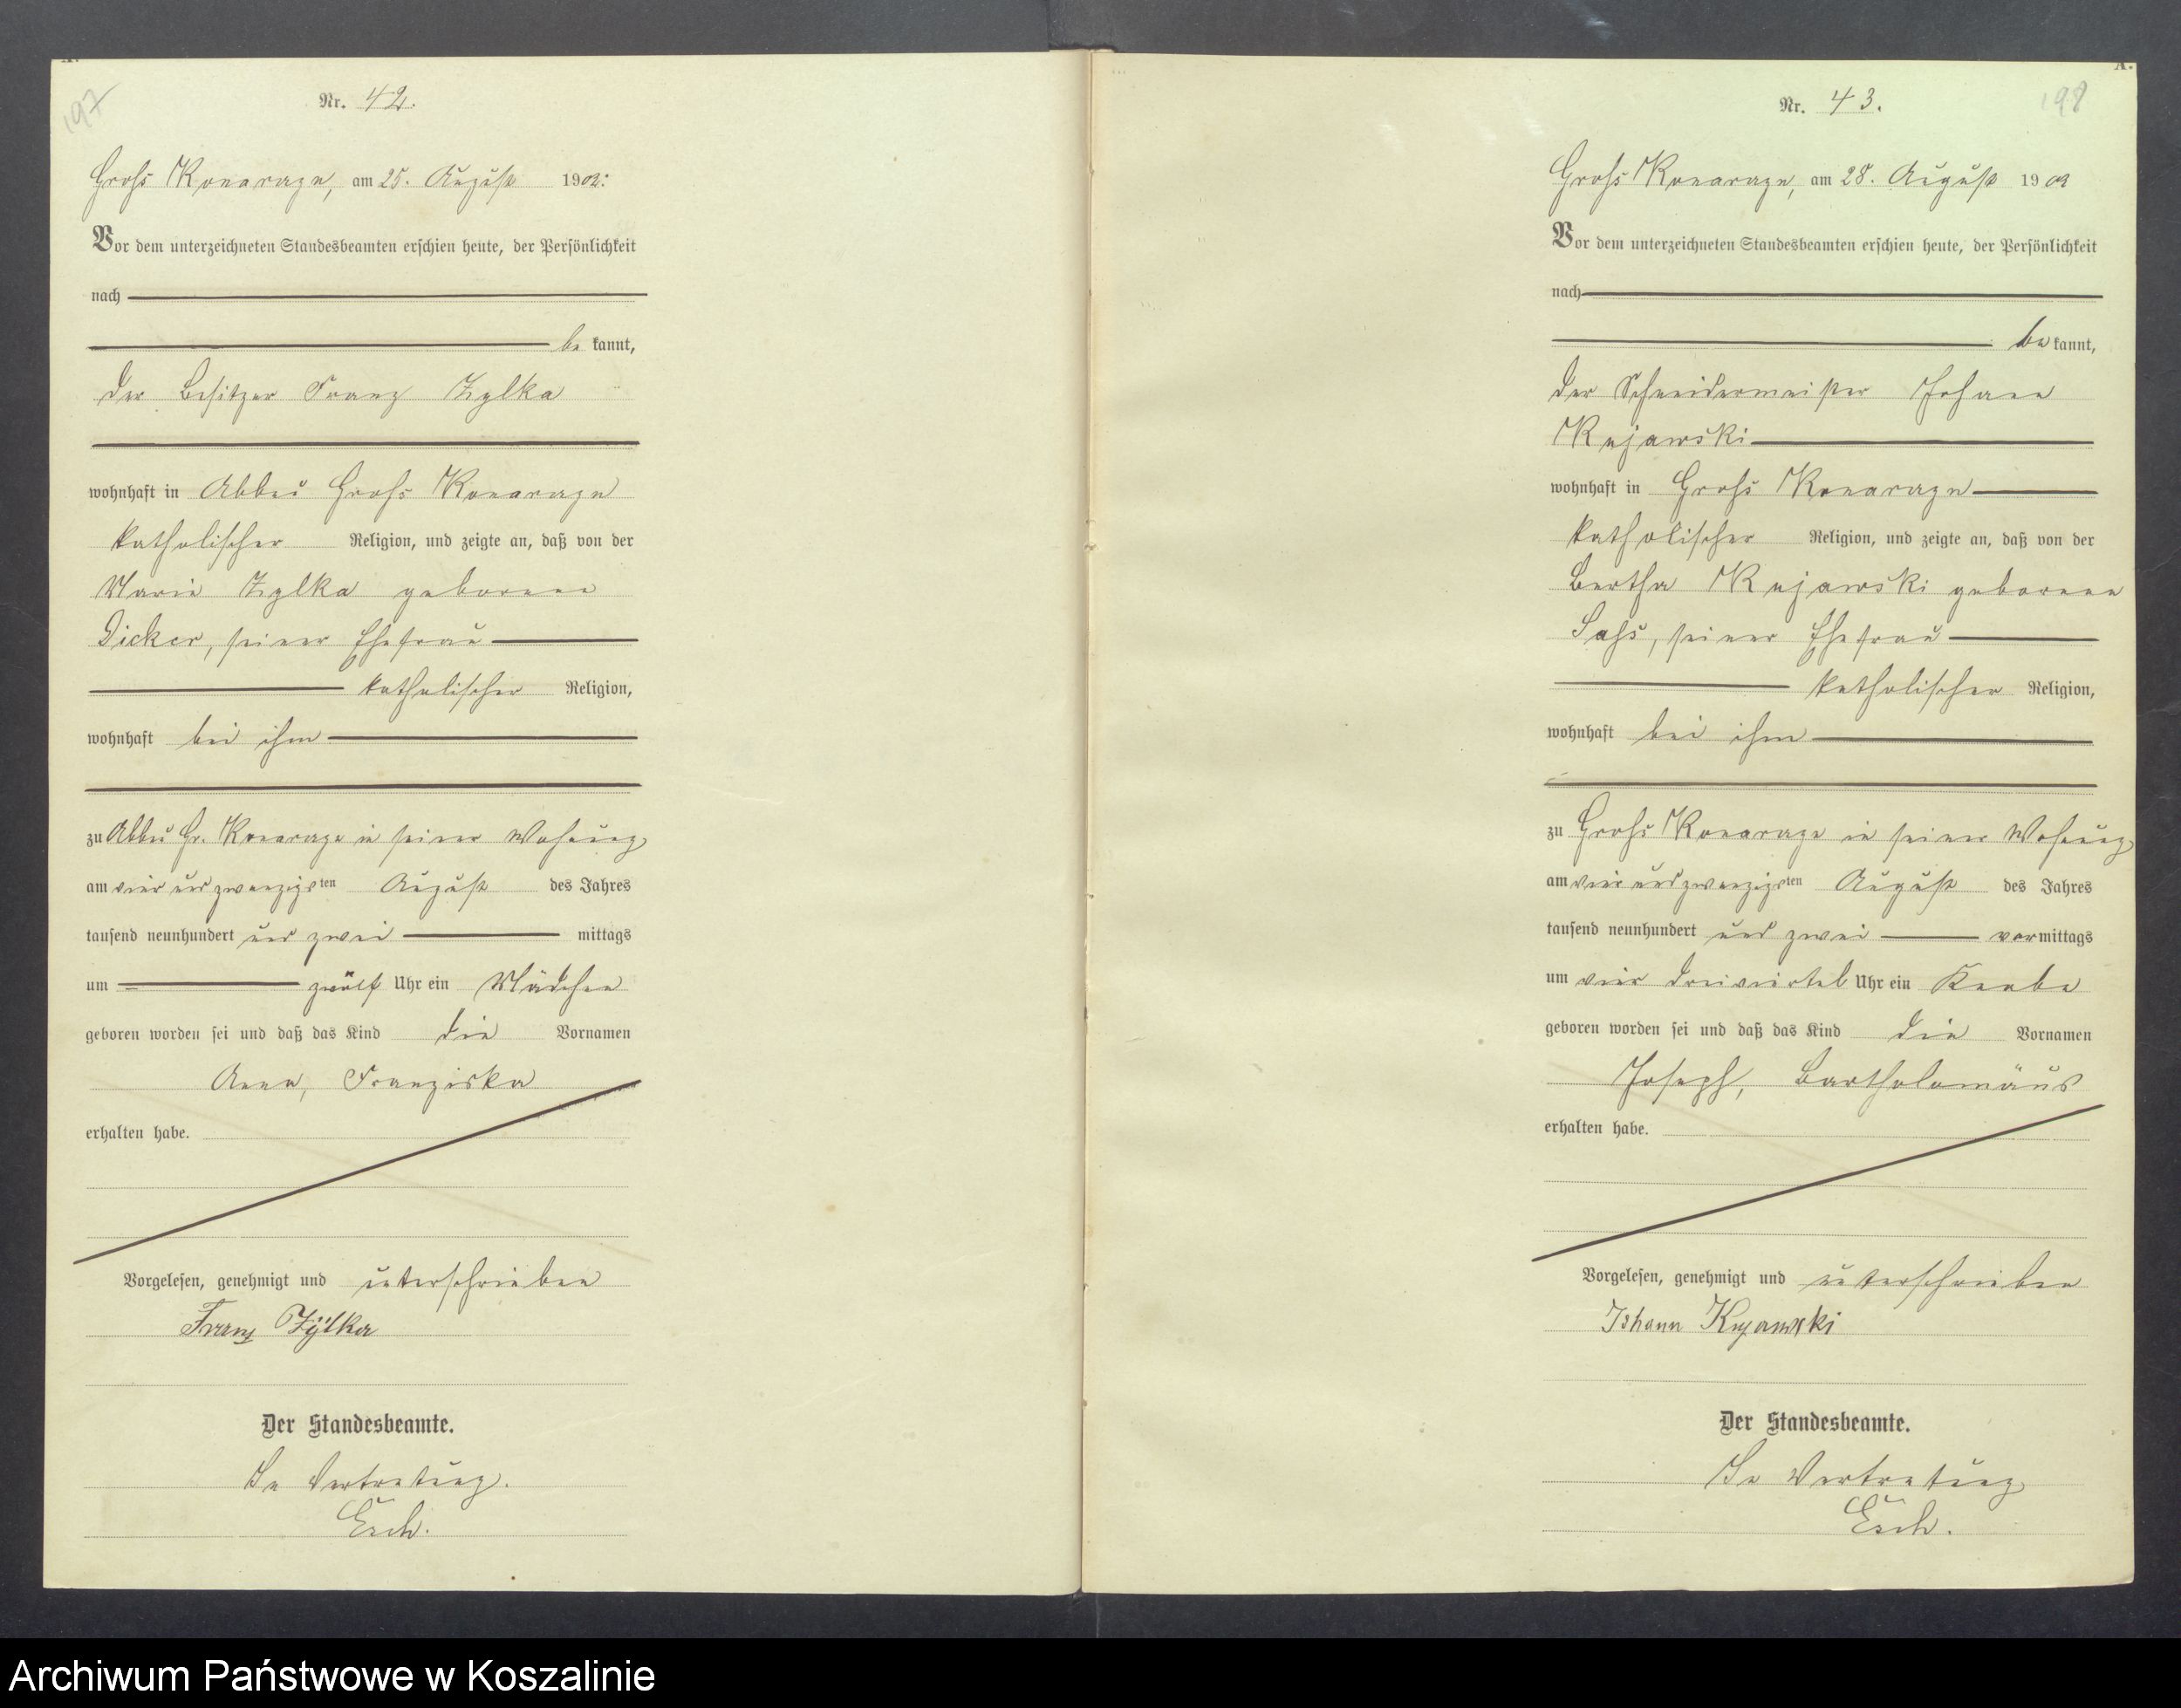 197
Nr. 42.
Groß Konarzyn, am 25. August 1902.
Vor dem unterzeichneten Standesbeamten erschien heute, der Persönlichkeit
nach
be kannt,
der Besitzer Franz Zylka
wohnhaft in Abbau Groß Konarzyn
katholischer Religion, und zeigte an, daß von der
Marie Zylka geborenen
Dicker, seiner Ehefrau
katholischer Religion,
wohnhaft bei ihm
zu Abbau Gr. Konarzyn in seiner Wohnung
am vier und zwanzigsten August des Jahres
tausend neunhundert und zwei mittags
um zwölf Uhr ein Mädchen
geboren worden sei und daß das Kind die Vornamen
Anna, Franziska
erhalten habe.
Vorgelesen, genehmigt und unterschrieben
Franz Zylka
Der Standesbeamte.
In Vertretung.
198
Nr. 43.
Groß Konarzyn, am 28. August 1902
Vor dem unterzeichneten Standesbeamten erschien heute, der Persönlichkeit
nach
be kannt,
der Schneidermeister Johann
Kujawski
wohnhaft in Groß Konarzyn
katholischer Religion, und zeigte an, daß von der
Bertha Kujawski geborenen
seiner Ehefrau
katholischer Religion,
wohnhaft bei ihm
zu Groß Konarzyn in seiner Wohnung
am vier und zwanzigsten August des Jahres
tausend neunhundert und zwei vormittags
um vier dreiviertel Uhr ein Knabe
geboren worden sei und daß das Kind die Vornamen
Joseph, Bartholomäus
erhalten habe.
Vorgelesen, genehmigt und unterschrieben
Johann Kujawski
Der Standesbeamte.
In Vertretung
Archiwum Państwowe w Koszalinie